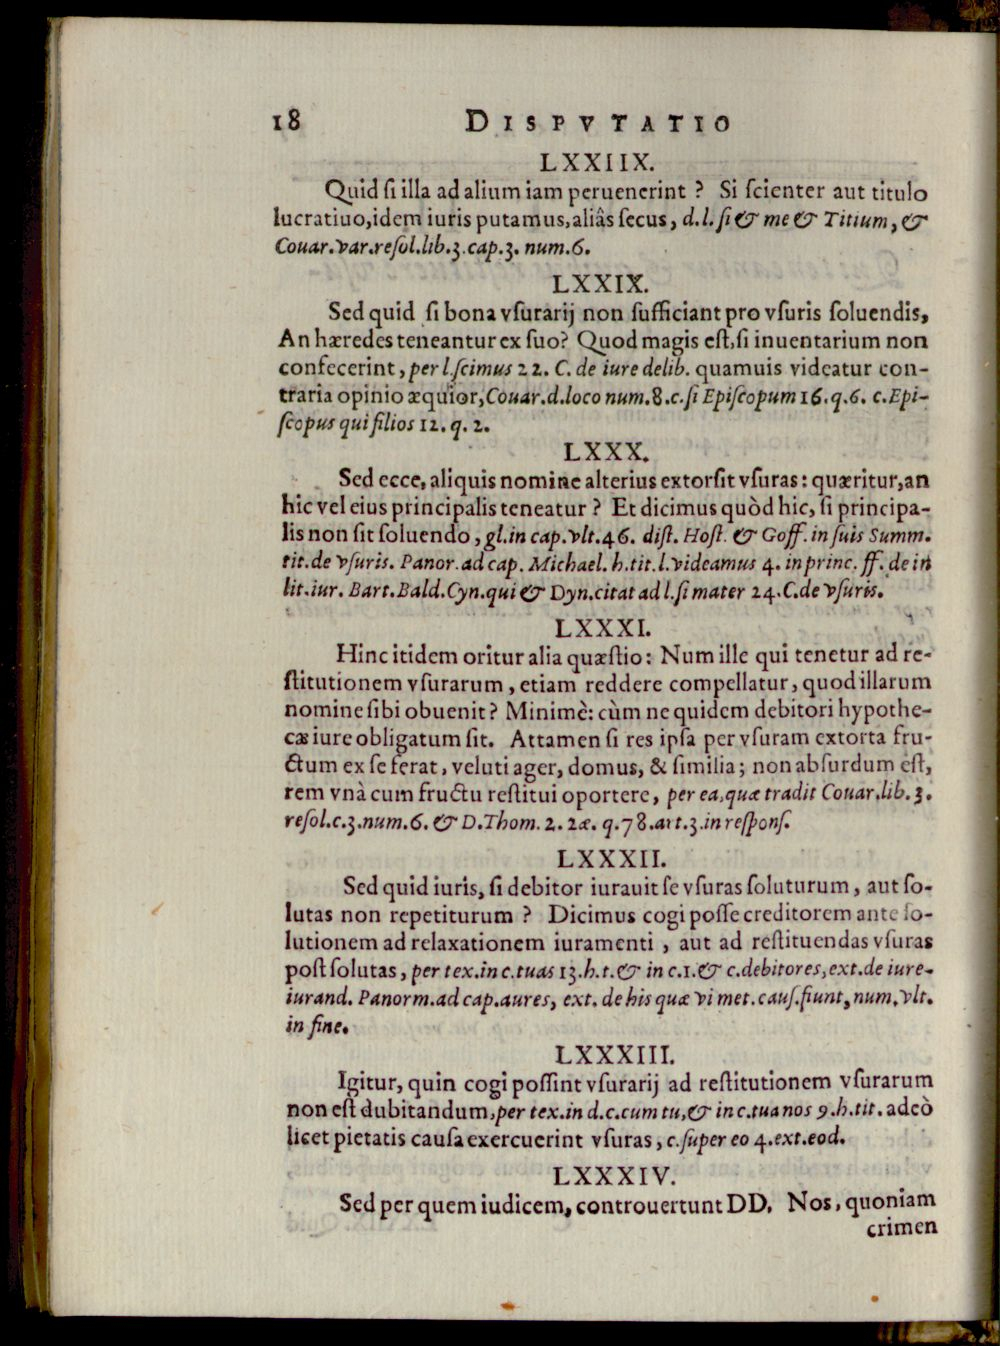 18 DISPVTATIO
LXXIIX.
Quid ſi illa ad alium iam peruenerint ? Si ſcienter aut titulo
lucratiuo, idem iuris putamus, aliâs ſecus, d. l. ſi & me & Titium, &
Couar. var. reſol. lib. 3. cap. 3. num. 6.
LXXIX.
Sed quid ſi bona vſurarij non ſufficiant pro vſuris ſoluendis,
An hæredes teneantur ex ſuo? Quod magis eſt, ſi inuentarium non
confecerint, per l. ſcimus 22. C. de iure delib. quamuis videatur con-
traria opinio æquior, Couar. d. loco num. 8. c. ſi Epiſcopum 16. q. 6. c. Epi-
ſcopus qui filios 12. q. 2.
LXXX.
Sed ecce, aliquis nomine alterius extorſit vſuras: quæritur, an
hic vel eius principalis teneatur ? Et dicimus quòd hic, ſi principa-
lis non ſit ſoluendo, gl. in cap. vlt. 46. diſt. Hoſt. & Goff. in ſuis Summ.
tit. de vſuris. Panor. ad cap. Michael. h. tit. l. videamus 4. in princ. ff. de in
lit. iur. Bart. Bald. Cyn. qui & Dyn. citat ad l. ſi mater 24. C. de vſuris.
LXXXI.
Hinc itidem oritur alia quæſtio: Num ille qui tenetur ad re-
ſtitutionem vſurarum, etiam reddere compellatur, quod illarum
nomine ſibi obuenit? Minimè: cùm ne quidem debitori hypothe-
cæ iure obligatum ſit. Attamen ſi res ipſa per vſuram extorta fru-
ctum ex ſe ferat, veluti ager, domus, & ſimilia; non abſurdum eſt,
rem vnà cum fructu reſtitui oportere, per ea, quæ tradit Couar. lib. 3.
reſol. c. 3. num. 6. & D. Thom. 2. 2æ. q. 78. art. 3. in reſponſ.
LXXXII.
Sed quid iuris, ſi debitor iurauit ſe vſuras ſoluturum, aut ſo-
lutas non repetiturum ? Dicimus cogi poſſe creditorem ante ſo-
lutionem ad relaxationem iuramenti, aut ad reſtituendas vſuras
poſt ſolutas, per tex. in c. tuas 13. h. t. & in c. 1. & c. debitores, ext. de iure-
iurand. Panorm. ad cap. aures, ext. de his quæ vi met. cauſ. fiunt, num. vlt.
in fine.
LXXXIII.
Igitur, quin cogi poſſint vſurarij ad reſtitutionem vſurarum
non eſt dubitandum, per tex. in d. c. cum tu, & in c. tua nos 9. h. tit. adeò
licet pietatis cauſa exercuerint vſuras, c. ſuper eo 4. ext. eod.
LXXXIV.
Sed per quem iudicem, controuertunt DD. Nos, quoniam
crimen